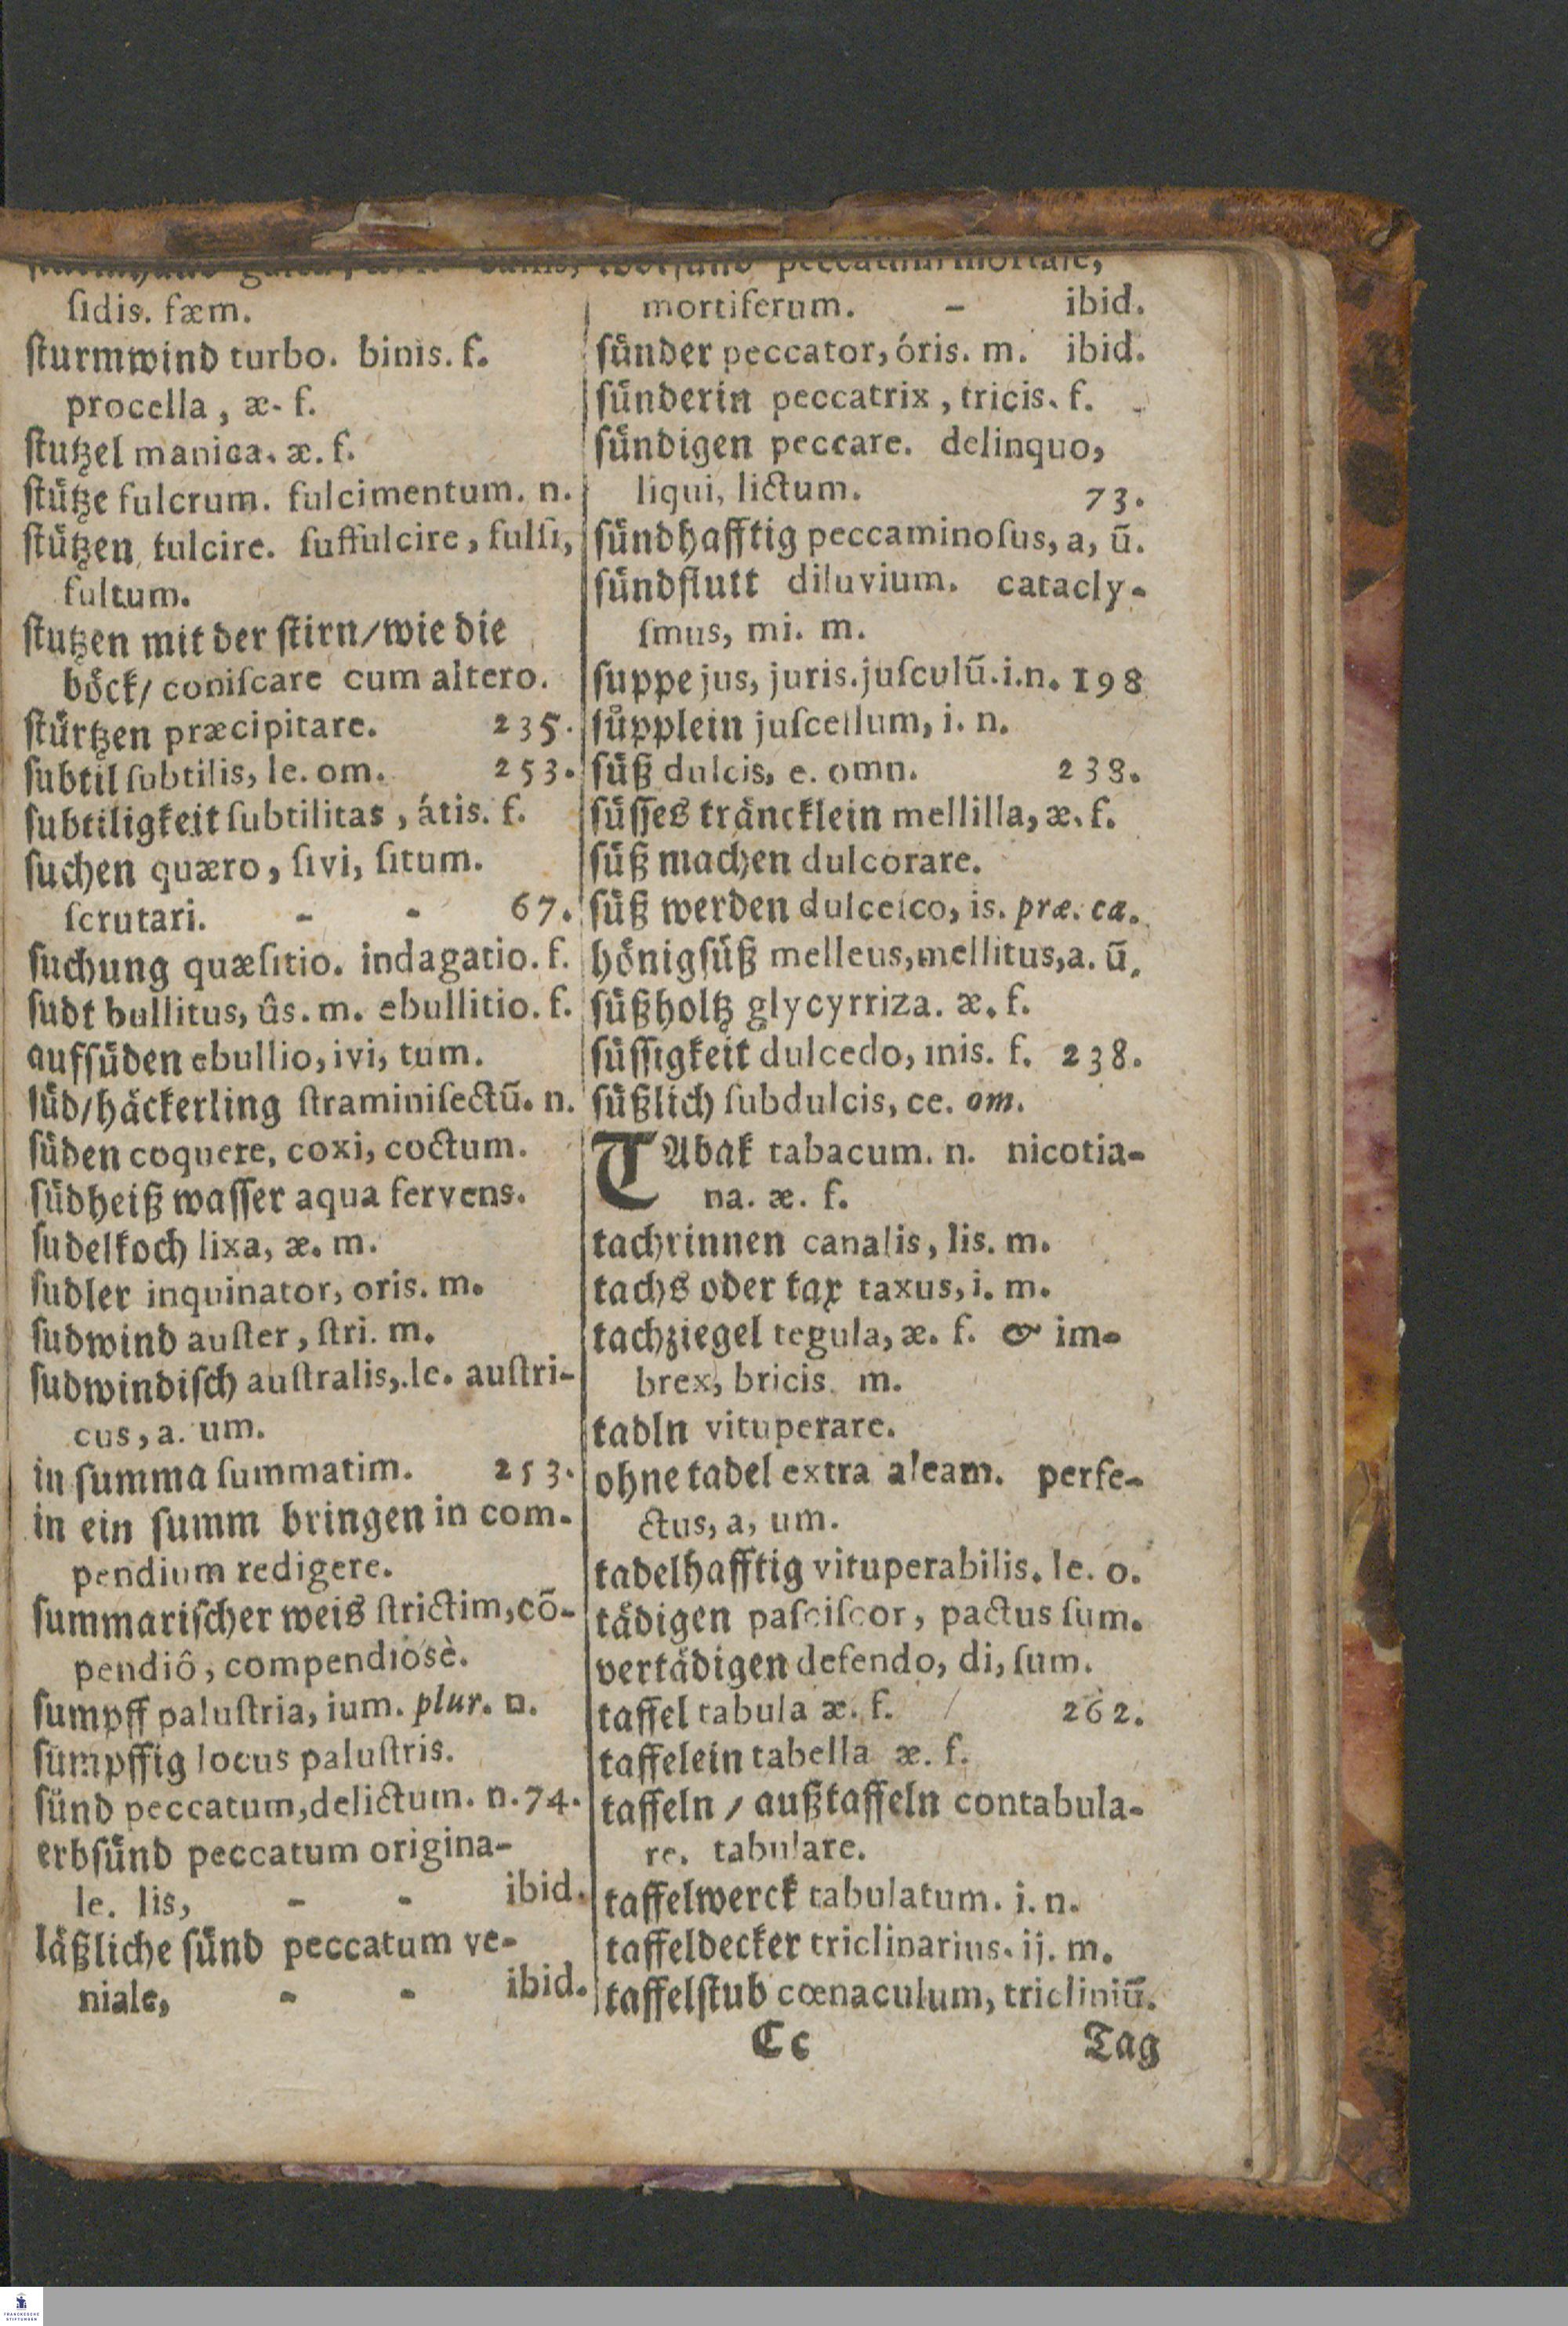 ſidis. fæm.
ſturmwind turbo. binis. f.
procella, æ. f.
ſtutzel manica. æ. f.
ſtuͤtze fulcrum. fulcimentum. n.
ſtuͤtzen fulcire. ſuffulcire, fulſi,
fultum.
ſtutzen mit der ſtirn/wie die
boͤck/ coniſcare cum altero.
ſtuͤrtzen præcipitare. 235.
ſubtil ſubtilis, le. om. 253.
ſubtiligkeit ſubtilitas, átis. f.
ſuchen quæro, ſivi, ſitum.
ſcrutari. - - 67.
ſuchung quæſitio. indagatio. f.
ſudt bullitus, ûs. m. ebullitio. f.
aufſuͤden ebullio, ivi, tum.
ſuͤd/haͤckerling ſtraminiſectū. n.
ſuͤden coquere, coxi, coctum.
ſuͤdheiß waſſer aqua fervens.
ſudelkoch lixa, æ. m.
ſudler inquinator, oris. m.
ſudwind auſter, ſtri. m.
ſudwindiſch auſtralis, le. auſtri-
cus, a. um.
in ſumma ſummatim. 253.
in ein ſumm bringen in com-
pendium redigere.
ſummariſcher weis ſtrictim, cō-
pendiô, compendiosè.
ſumpff paluſtria, ium. plur. n.
ſumpffig locus paluſtris.
ſuͤnd peccatum, delictum. n. 74.
erbſuͤnd peccatum origina-
le. lis, - - ibid.
laͤßliche ſuͤnd peccatum ve-
niale, - - ibid.
mortiferum. - ibid.
ſuͤnder peccator, óris. m. ibid.
ſuͤnderin peccatrix, tricis. f.
ſuͤndigen peccare. delinquo,
liqui, lictum. 73.
ſuͤndhafftig peccaminoſus, a, ū.
ſuͤndflutt diluvium. catacly-
ſmus, mi. m.
ſuppe jus, juris. juſculū. i. n. 198
ſuͤpplein juſcellum, i. n.
ſuͤß dulcis, e. omn. 238.
ſuͤſſes traͤncklein mellilla, æ. f.
ſuͤß machen dulcorare.
ſuͤß werden dulceſco, is. præ. ca.
hoͤnigſuͤß melleus, mellitus, a. ū.
ſuͤßholtz glycyrriza. æ. f.
ſuͤſſigkeit dulcedo, inis. f. 238.
ſuͤßlich ſubdulcis, ce. om.
TAbak tabacum. n. nicotia-
na. æ. f.
tachrinnen canalis, lis. m.
tachs oder tax taxus, i. m.
tachziegel tegula, æ. f. & im-
brex, bricis. m.
tadln vituperare.
ohne tadel extra aleam. perfe-
ctus, a, um.
tadelhafftig vituperabilis. le. o.
taͤdigen paſciſcor, pactus ſum.
vertaͤdigen defendo, di, ſum.
taffel tabula æ. f. 262.
taffelein tabella æ. f.
taffeln / außtaffeln contabula-
re. tabulare.
taffelwerck tabulatum. i. n.
taffeldecker triclinarius. ij. m.
taffelſtub cœnaculum, tricliniū.
Cc Tag
FRANCKESCHE
STIFTUNGEN